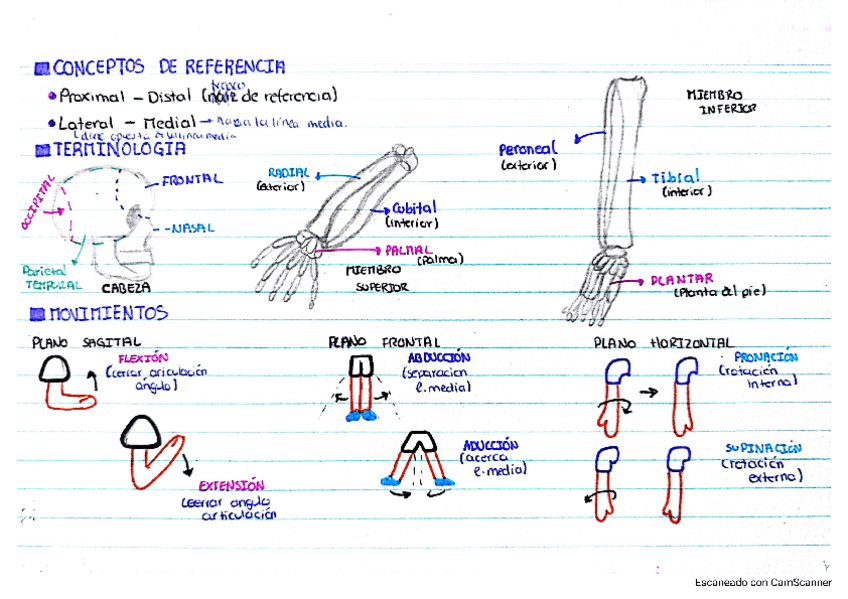 CONCEPTOS DE REFERENCIA
Proximal - Distal (raiz de referencia)
tronco
Lateral - Medial → hacia la línea media.
TERMINOLOGIA
OCCIPITAL
FRONTAL
NASAL
Parietal
TEMPORAL
CABEZA
RADIAL
(exterior)
Cubital
(interior)
PALMAL
(Palma)
MIEMBRO
SUPERIOR
MIEMBRO
INFERIOR
Peroneal
(exterior)
Tibial
(interior)
PLANTAR
(Planta del pie)
MOVIMIENTOS
PLANO SAGITAL
FLEXIÓN
(cerrar articulación
angulo)
EXTENSIÓN
(cerrar angulo
articulación
PLANO FRONTAL
ABDUCCIÓN
(separacion
l. media)
ADUCCIÓN
(acerca
l. media)
PLANO HORIZONTAL
PRONACIÓN
(rotación
interna)
SUPINACIÓN
(rotación
externa)
Escaneado con CamScanner